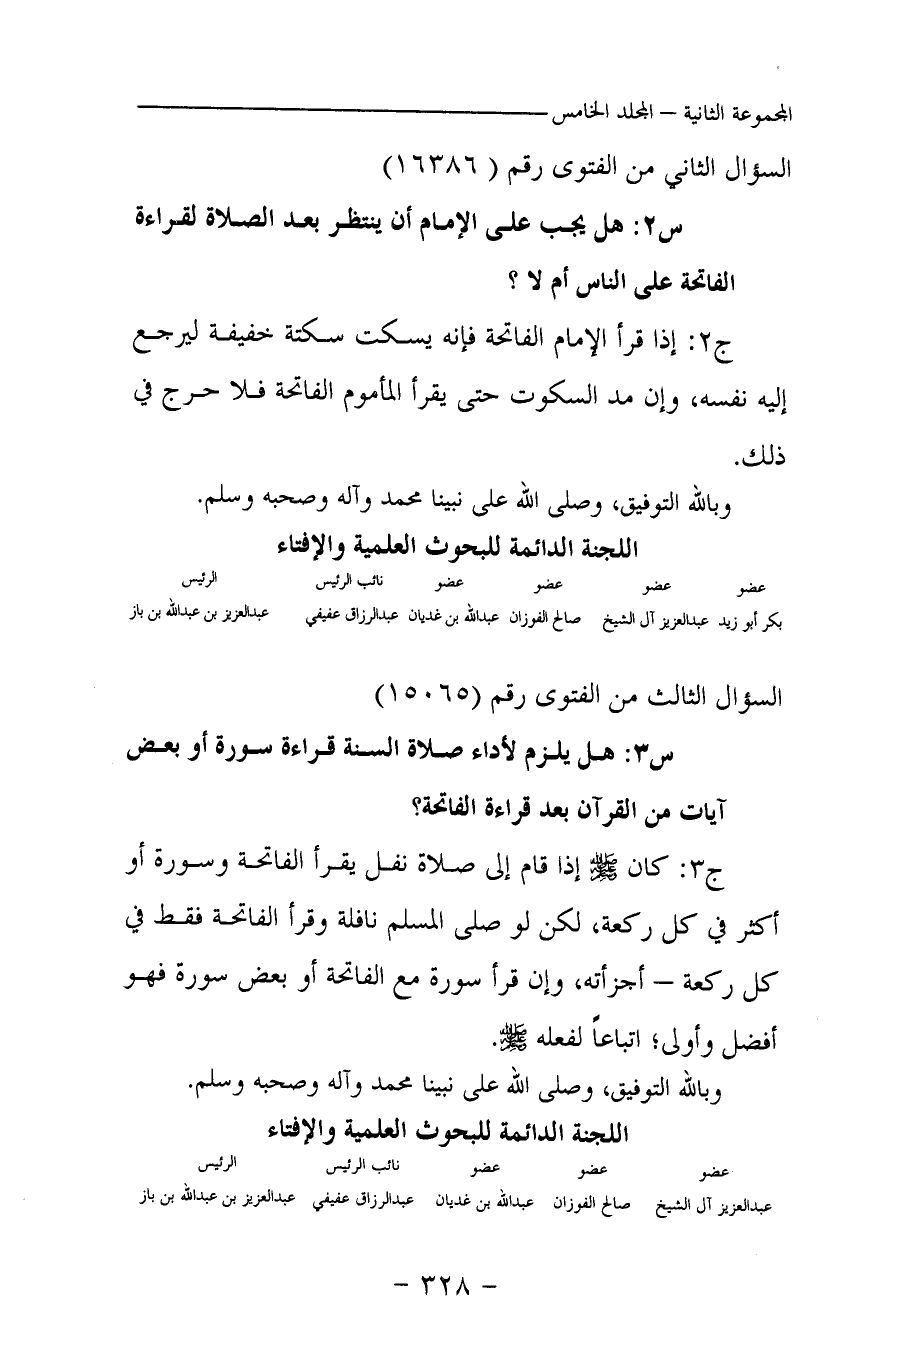 المجموعة الثانية – المجلد الخامس
السؤال الثاني من الفتوى رقم ( ١٦٣٨٦)
س٢: هل يجب على الإمام أن ينتظر بعد الصلاة لقراءة
الفاتحة على الناس أم لا ؟
ج٢: إذا قرأ الإمام الفاتحة فإنه يسكت سكتة خفيفة ليرجع
إليه نفسه، وإن مد السكوت حتى يقرأ المأموم الفاتحة فلا حرج في
ذلك.
وبالله التوفيق، وصلى الله على نبينا محمد وآله وصحبه وسلم.
اللجنة الدائمة للبحوث العلمية والإفتاء
عضو عضو عضو عضو نائب الرئيس الرئيس
بكر أبو زيد عبدالعزيز آل الشيخ صالح الفوزان عبدالله بن غديان عبدالرزاق عفيفي عبدالعزيز بن عبدالله بن باز
السؤال الثالث من الفتوى رقم (١٥٠٦٥)
س٣: هل يلزم لأداء صلاة السنة قراءة سورة أو بعض
آيات من القرآن بعد قراءة الفاتحة؟
ج٣: كان ﷺ إذا قام إلى صلاة نفل يقرأ الفاتحة وسورة أو
أكثر في كل ركعة، لكن لو صلى المسلم نافلة وقرأ الفاتحة فقط في
كل ركعة – أجزأته، وإن قرأ سورة مع الفاتحة أو بعض سورة فهو
أفضل وأولى؛ اتباعاً لفعله ﷺ.
وبالله التوفيق، وصلى الله على نبينا محمد وآله وصحبه وسلم.
اللجنة الدائمة للبحوث العلمية والإفتاء
عضو عضو عضو نائب الرئيس الرئيس
عبدالعزيز آل الشيخ صالح الفوزان عبدالله بن غديان عبدالرزاق عفيفي عبدالعزيز بن عبدالله بن باز
– ٣٢٨ –